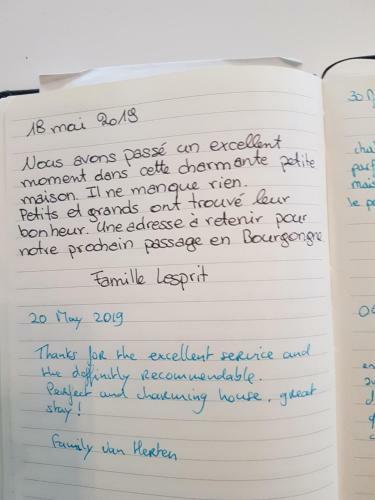 18 mai 2019
Nous avons passé un excellent
moment dans cette charmante petite
maison. Il ne manque rien.
Petits et grands ont trouvé leur
bonheur. Une adresse à retenir pour
notre prochain passage en Bourgongne
Famille Lesprit
20 May 2019
Thanks for the excellent service and
the definitly recommendable.
Perfect and charming house, great
stay!
Family van Herten
30